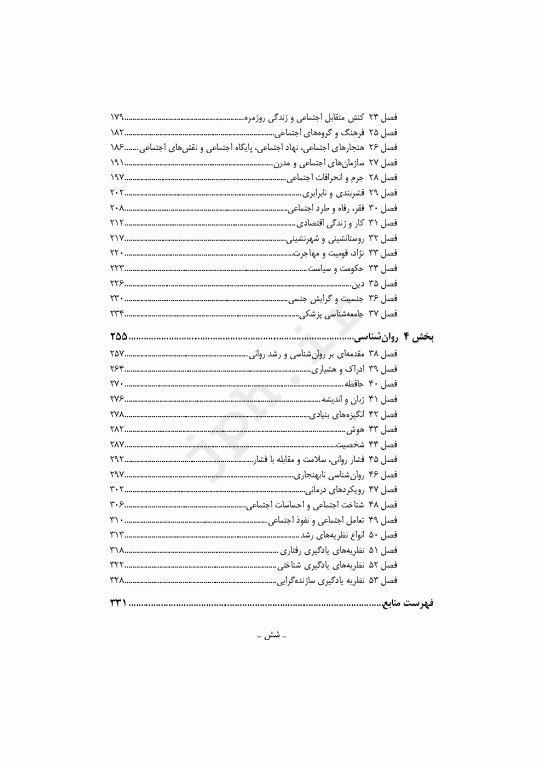 فصل ۲۴ کنش متقابل اجتماعی و زندگی روزمره............۱۷۹
فصل ۲۵ فرهنگ و گروه‌های اجتماعی............۱۸۲
فصل ۲۶ هنجارهای اجتماعی، نهاد اجتماعی، پایگاه اجتماعی و نقش‌های اجتماعی.......۱۸۶
فصل ۲۷ سازمان‌های اجتماعی و مدرن............۱۹۱
فصل ۲۸ جرم و انحرافات اجتماعی............۱۹۷
فصل ۲۹ قشربندی و نابرابری............۲۰۲
فصل ۳۰ فقر، رفاه و طرد اجتماعی............۲۰۸
فصل ۳۱ کار و زندگی اقتصادی............۲۱۲
فصل ۳۲ روستانشینی و شهرنشینی............۲۱۷
فصل ۳۳ نژاد، قومیت و مهاجرت............۲۲۰
فصل ۳۴ حکومت و سیاست............۲۲۳
فصل ۳۵ دین............۲۲۶
فصل ۳۶ جنسیت و گرایش جنسی............۲۳۰
فصل ۳۷ جامعه‌شناسی پزشکی............۲۳۴
بخش ۴ روان‌شناسی............۲۵۵
فصل ۳۸ مقدمه‌ای بر روان‌شناسی و رشد روانی............۲۵۷
فصل ۳۹ ادراک و هشیاری............۲۶۴
فصل ۴۰ حافظه............۲۷۰
فصل ۴۱ زبان و اندیشه............۲۷۶
فصل ۴۲ انگیزه‌های بنیادی............۲۷۸
فصل ۴۳ هوش............۲۸۲
فصل ۴۴ شخصیت............۲۸۷
فصل ۴۵ فشار روانی، سلامت و مقابله با فشار............۲۹۲
فصل ۴۶ روان‌شناسی نابهنجاری............۲۹۷
فصل ۴۷ رویکردهای درمانی............۳۰۲
فصل ۴۸ شناخت اجتماعی و احساسات اجتماعی............۳۰۶
فصل ۴۹ تعامل اجتماعی و نفوذ اجتماعی............۳۱۰
فصل ۵۰ انواع نظریه‌های رشد............۳۱۳
فصل ۵۱ نظریه‌های یادگیری رفتاری............۳۱۸
فصل ۵۲ نظریه‌های یادگیری شناختی............۳۲۲
فصل ۵۳ نظریه یادگیری سازنده‌گرایی............۳۲۸
فهرست منابع............۳۳۱
ـ شش ـ
jph.ir